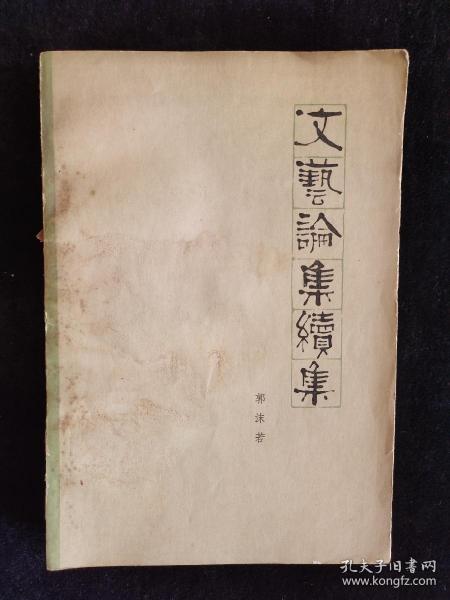 文藝論集續集
郭沫若
孔夫子旧书网
www.kongfz.com